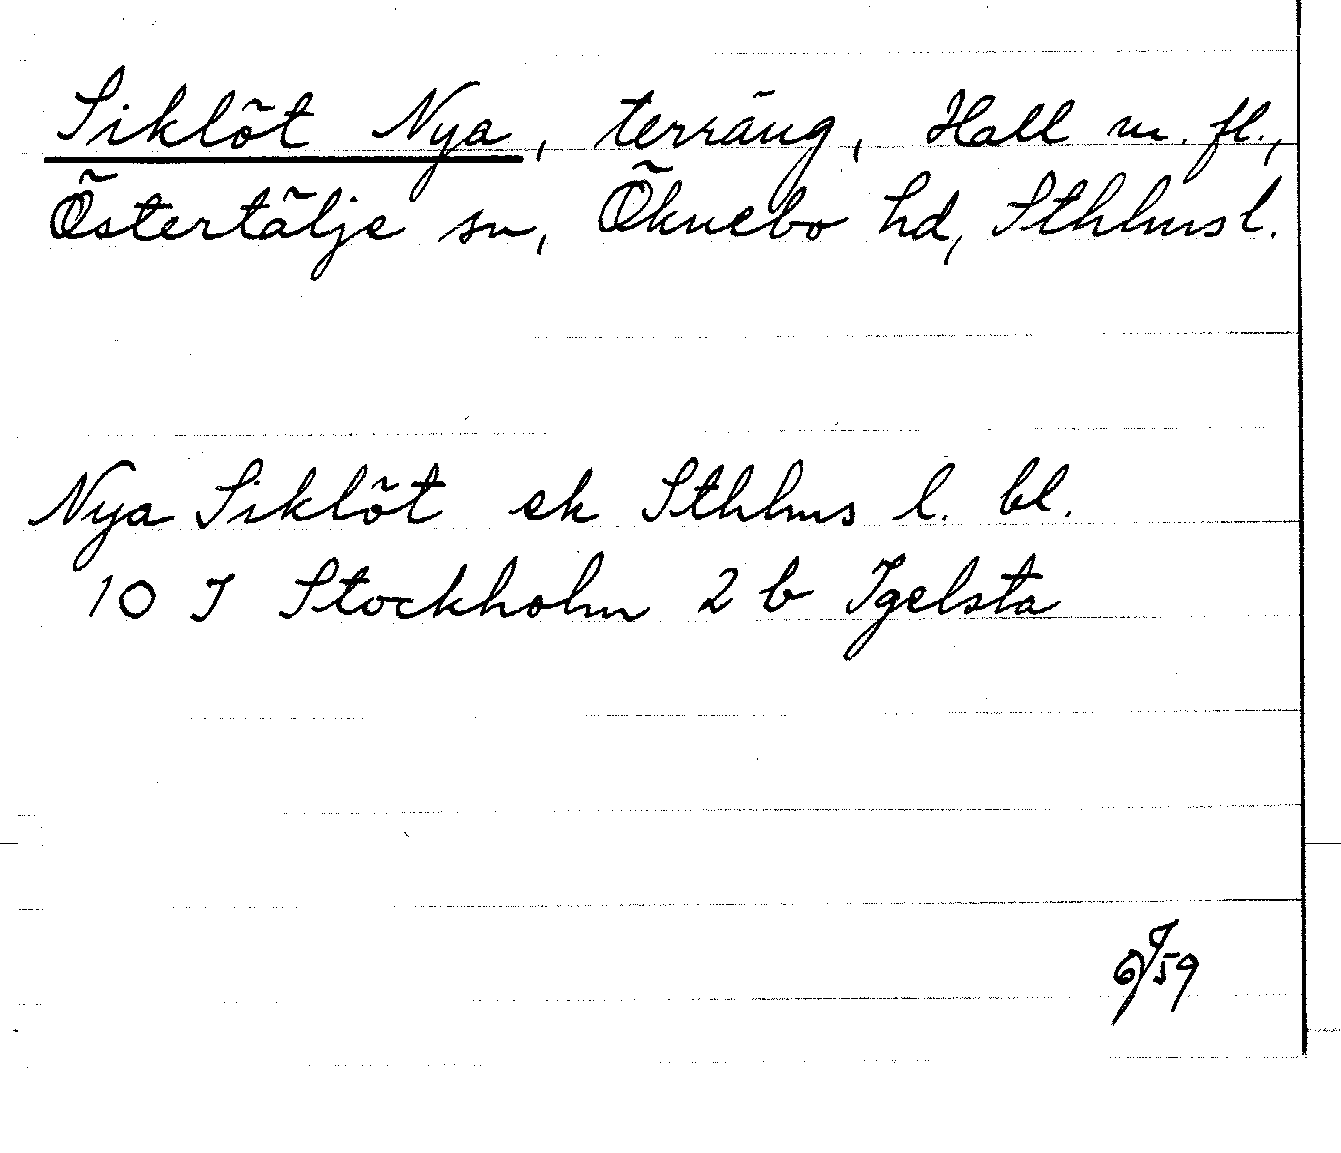 Siklöt Nya, terräng, Hall m. fl.,
Östertälje sn, Öknebo hd, Sthlms l.
Nya Siklöt ek Sthlms l. bl.
10 J Stockholm 2 b Igelsta